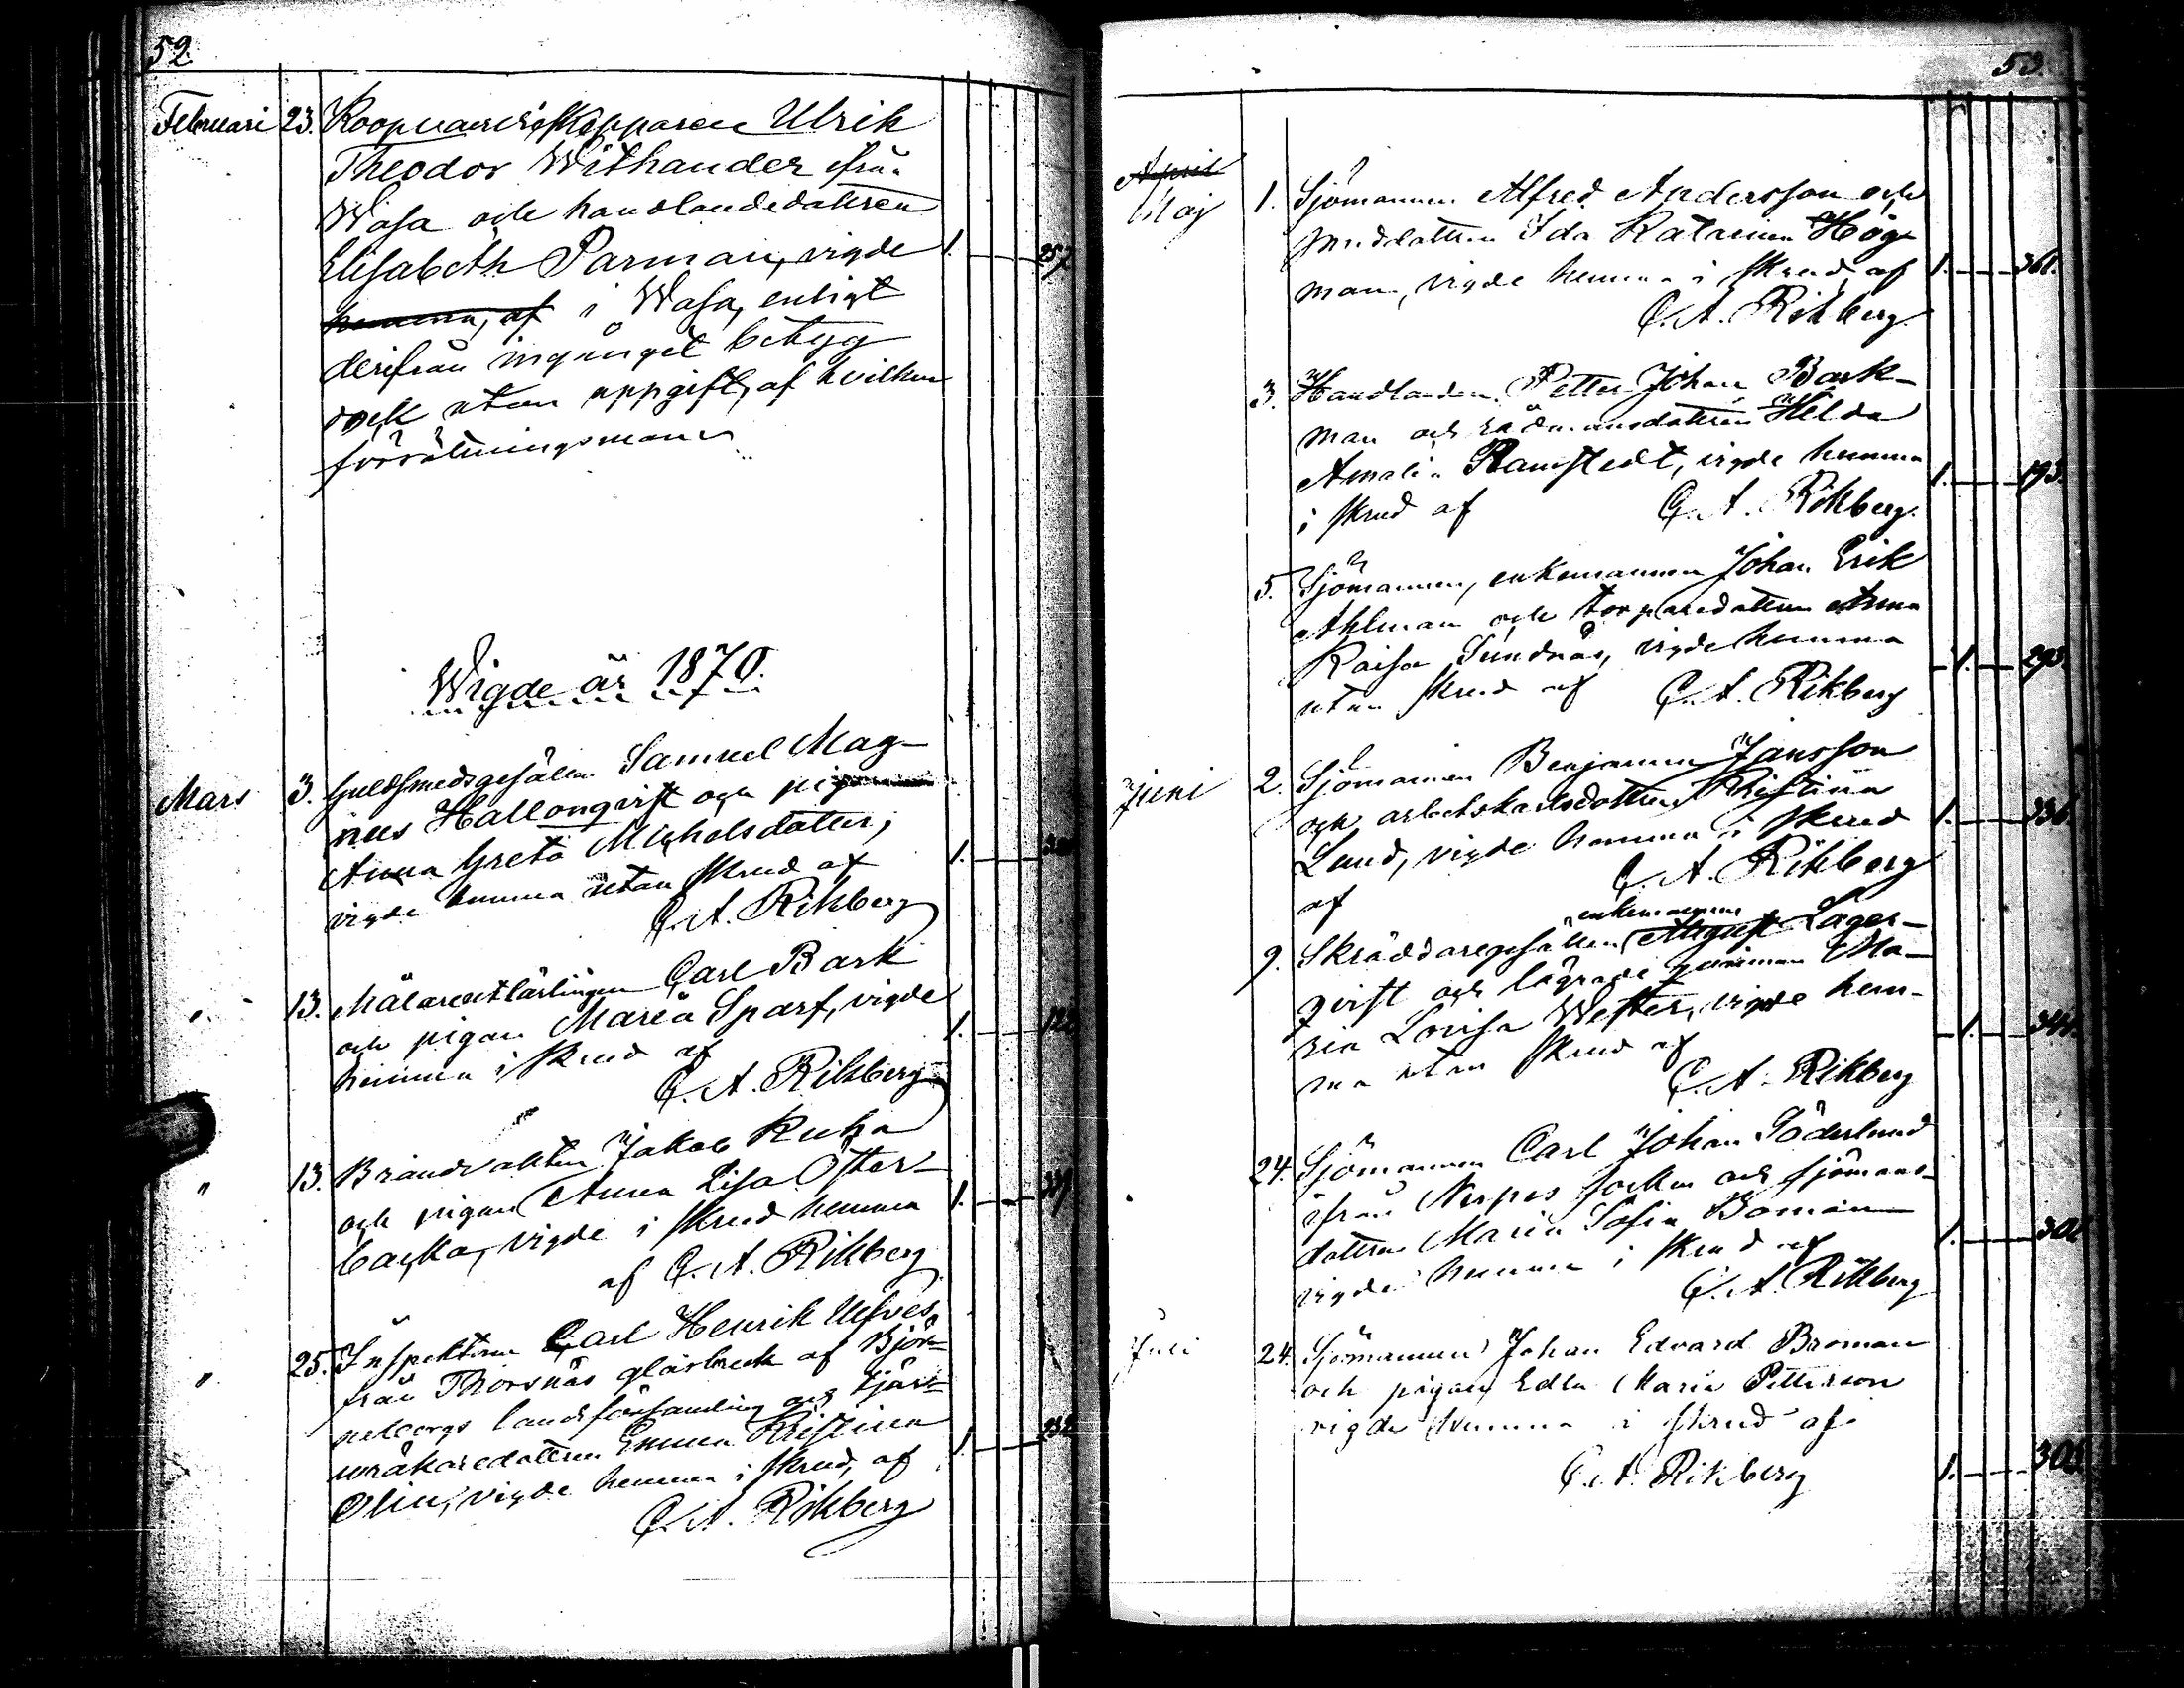 52.
Februari 23. Koopvaerdiskepparen Ulrik
Theodor Withander från
Wasa och handlandedottren
Elisabeth Parman, vigde 1. 257
hemma, af i Wasa, enligt
derifrån ingånget betyg
dock utan uppgift, af hvilken
förrättningsman
Wigde år 1870.
Mars 3. Guldsmedsgesällen Samuel Mag-
nus Hallonqvist och pigan
Anna Greta Michelsdotter, 1.
vigde hemma utan skrud af
C. A. Rikberg
" 13. Målareutlärlingen Carl Bark
och pigan Maria Sparf, vigde 1.
hemma i skrud af
C. A. Rikberg
" 13. Brandvakten Jakob Kuha
och pigan Anna Lisa Öster- 1.
backa, vigde i skrud hemma
af C. A. Rikberg
" 25. Inspektoren Carl Henrik Ulfves
från Thorsnäs glasbruk af Björ-
neborgs landsförsamling och tjär-
uvräkaredottren Emma Kristina 1. 232
Olin, vigde hemma i skrud, af
C. A. Rikberg
53.
April
Maj 1. Sjömannen Alfred Andersson och
smeddottren Ida Katarina Hög-
man, vigde hemma i skrud af 1. 361.
C. A. Rikberg.
3. Handlanden Petter Johan Bark-
man och rådmansdottren Hilda
Amalia Ramstedt, vigde hemma 1. 193.
i skrud af C. A. Rikberg.
5. Sjömannen, enkemannen Johan Erik
Ahlman och torparedottren Anna
Kaisa Sundnäs, vigde hemma 1. 293.
utan skrud af C. A. Rikberg
Juni 2. Sjömannen Benjamin Jansson
och arbetskarlsdottren Kristina
Lund, vigde hemma i skrud 1. 336.
af C. A. Rikberg
enkemannen
9. Skräddaregesällen August Lager-
qvist och lägrade qvinnan Ma-
ria Lovisa Wester, vigde hem- 1. 344.
ma utan skrud af
C. A. Rikberg
24. Sjömannen Carl Johan Söderlund
ifrån Nerpes socken och sjömans-
dottren Maria Sofia Boman 1. 301
vigde hemma i skrud af
C. A. Rikberg
Juli 24. Sjömannen Johan Edvard Broman
och pigan Edla Maria Petterson
vigde hemma i skrud af
C. A. Rikberg 1. 305